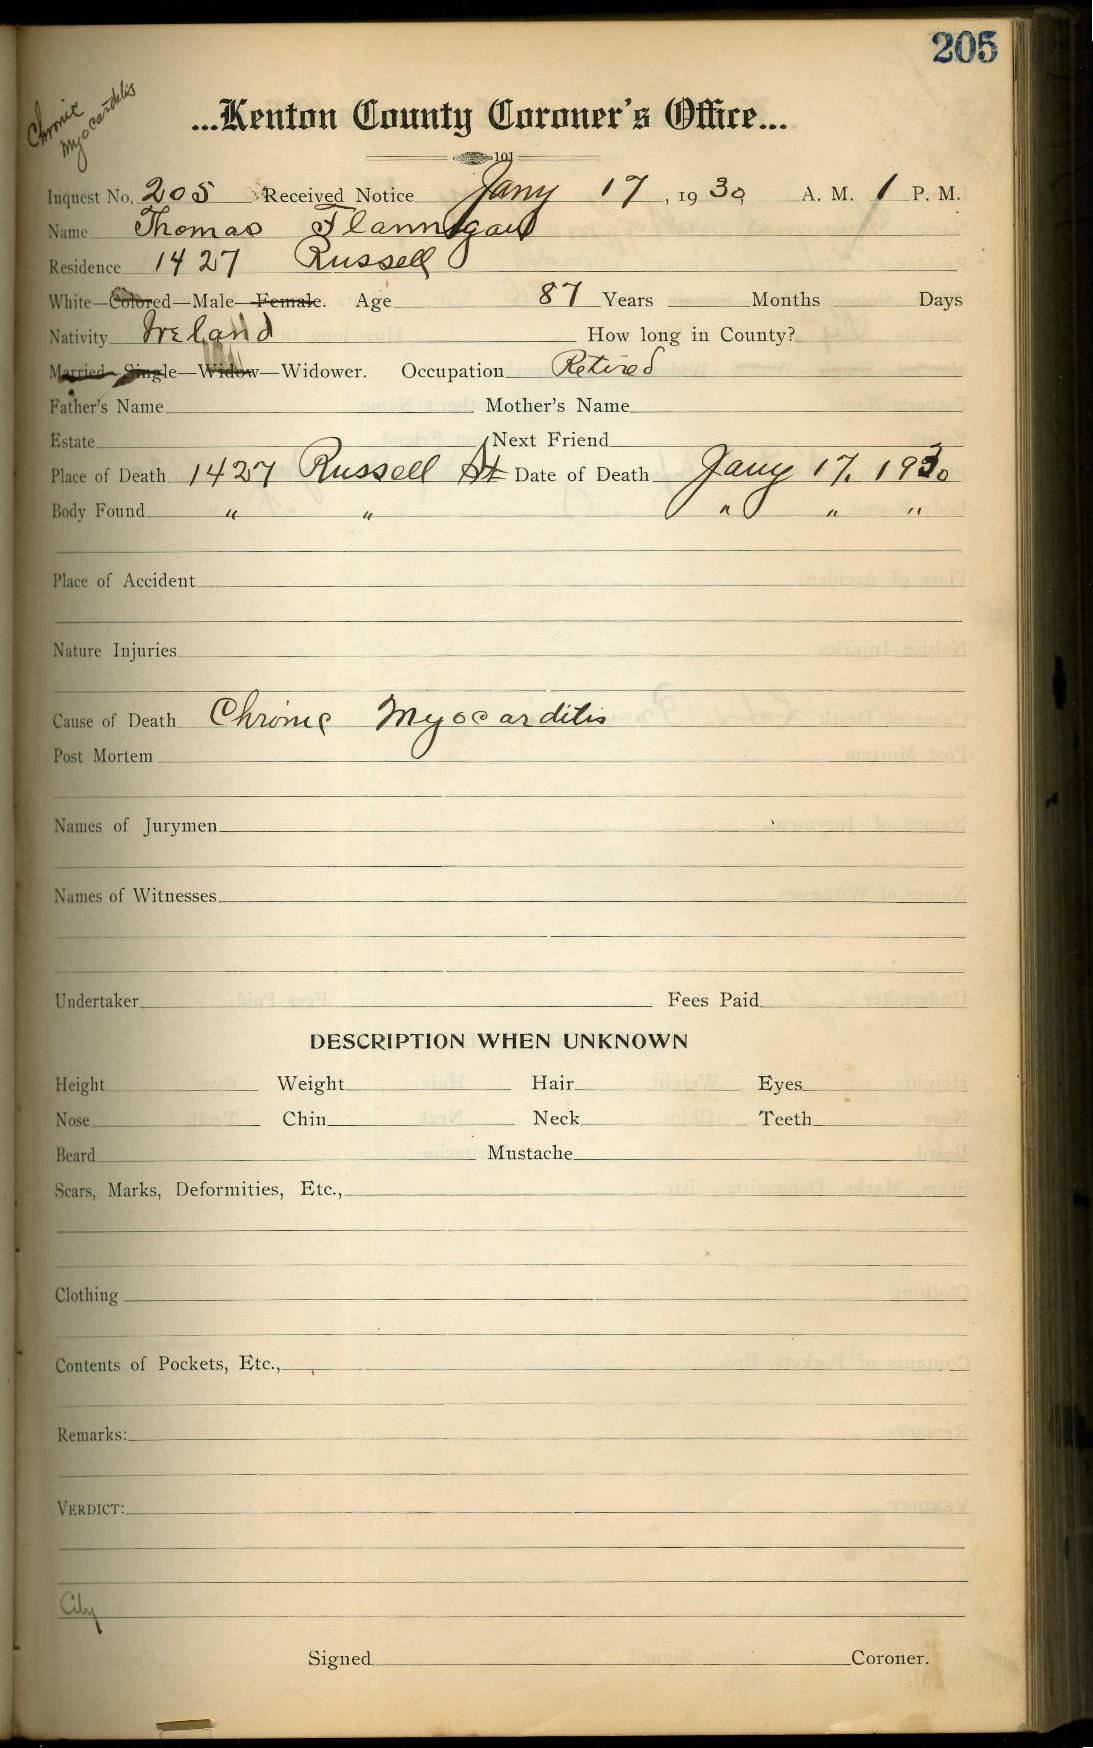 205
Chronic
Myocarditis
...Kenton County Coroner's Office...
101
Inquest No. 205 Received Notice Jany 17, 1930 A. M. 1 P. M.
Name Thomas Flannigan
Residence 1427 Russell
White—Colored—Male—Female. Age 87 Years Months Days
Nativity Ireland How long in County?
Married—Single—Widow—Widower. Occupation Retired
Father's Name Mother's Name
Estate Next Friend
Place of Death 1427 Russell St Date of Death Jany 17. 1930
Body Found " " " " "
Place of Accident
Nature Injuries
Cause of Death Chronic Myocarditis
Post Mortem
Names of Jurymen
Names of Witnesses
Undertaker Fees Paid
DESCRIPTION WHEN UNKNOWN
Height Weight Hair Eyes
Nose Chin Neck Teeth
Beard Mustache
Scars, Marks, Deformities, Etc.,
Clothing
Contents of Pockets, Etc.,
Remarks:
VERDICT:
City
Signed Coroner.